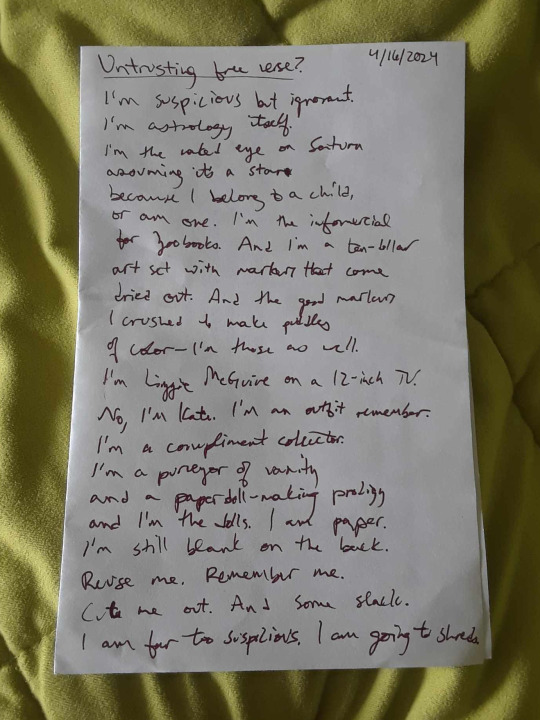 Untrusting free verse?
4/16/2024
I'm suspicious but ignorant.
I'm astrology itself.
I'm the naked eye on Saturn
assuming it's a star
because I belong to a child,
or am one. I'm the infomercial
for Zoobooks. And I'm a ten-dollar
art set with markers that come
dried out. And the good markers
I crushed to make puddles
of color—I'm those as well.
I'm Lizzie McGuire on a 12-inch TV.
No, I'm Kate. I'm an outfit remember.
I'm a compliment collector.
I'm a purveyor of vanity
and a paperdoll-making prodigy
and I'm the dolls. I am paper.
I'm still blank on the back.
Revise me. Remember me.
Cut me out. And some slack.
I am far too suspicious. I am going to shreds